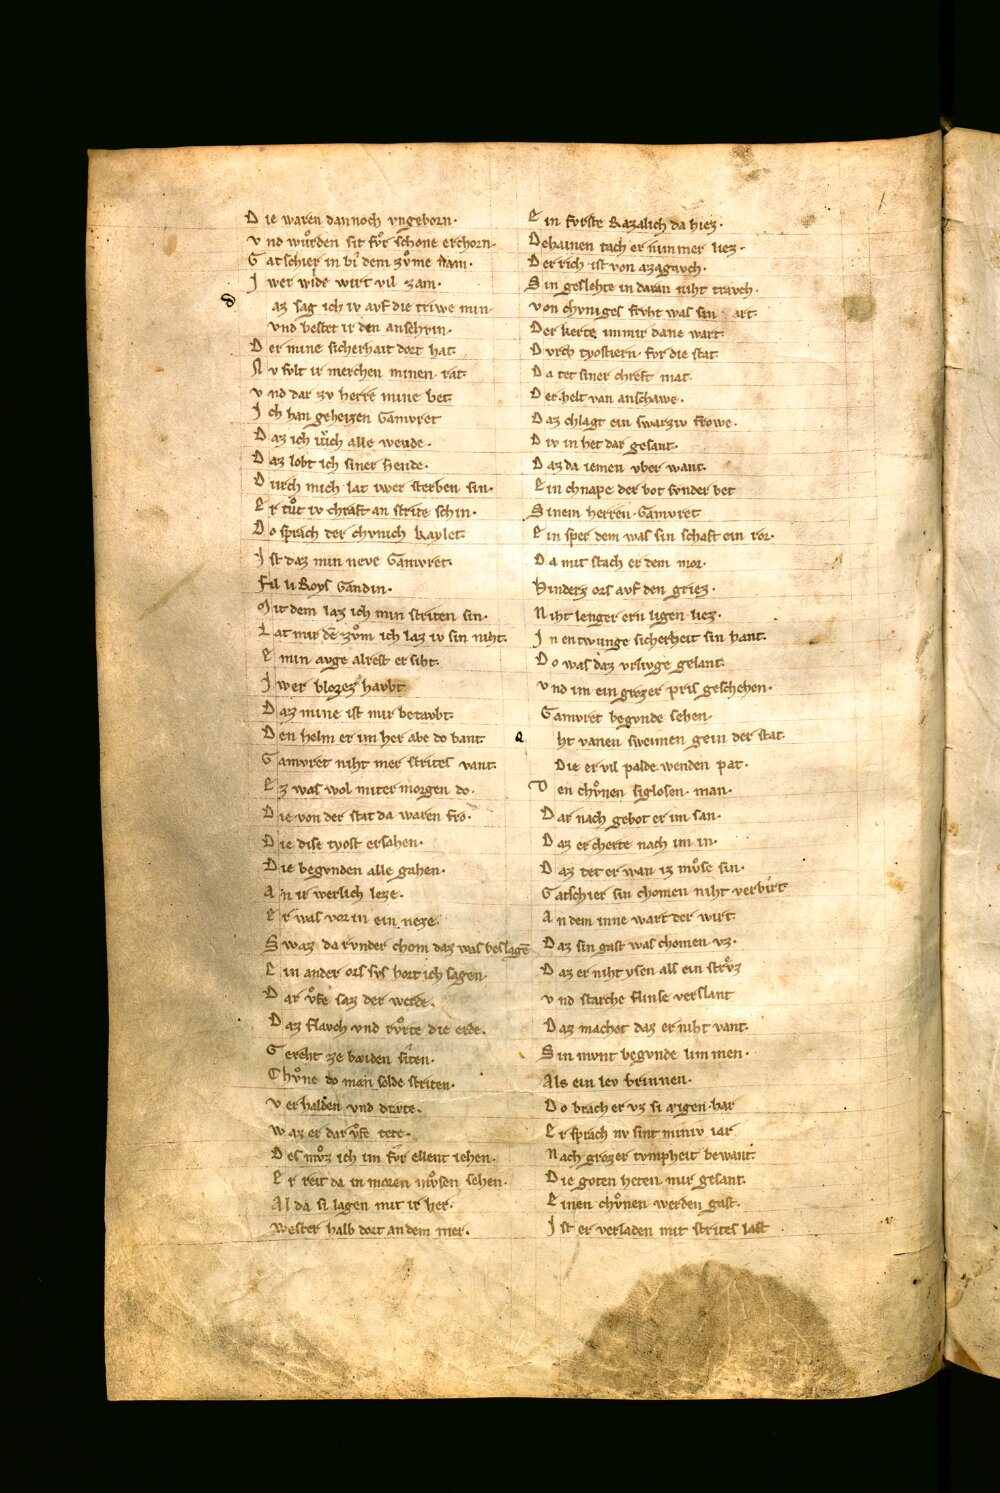 Die waren dannoch vngeborn·
vnd wuͦrden sit fuͦr schone erchorn·
Gatschier in bi dem zuͦme nam·
Iwer wilde wirt vil zam·
d
az sag ich iv avf die triwe min·
vnd bestet ir den anschvin·
Der mine sicherhait dort hat·
Nv svlt ir merchen minen rat·
vnd dar zv herre mine bet·
Ich han geheizen Gamvret
Daz ich uͦch alle wende·
Daz lobt ich siner hende·
Durch mich lat iwer sterben sin·
Er tuͦt iv chraft an strite schin·
Do sprach der chvnich kaylet·
Ist daz min neve Gamvret·
Fil li Roys Gandin·
Mit dem laz ich min striten sin·
Lat mir dē zvͦm ich laz iv sin niht·
E min avge alrest er siht·
Iwer blozez havbt
Daz mine ist mir betavbt·
Den helm er im her abe do bant·
Gamvret niht mer strites vant·
Ez was wol miter morgen do·
Die von der stat da waren fro·
Die dise tyost ersahen·
Die begvnden alle gahen·
An ir werlich leze·
Er was vor in ein neze·
Swaz da rvnder chom daz was beslagē
Ein ander ors svs hort ich sagen·
Dar vͦfe saz der werde·
Daz flavch vnd rvͦrte die erde·
Gereht ze baiden siten·
Chvͦne do man solde striten·
verhalden vnd drate·
waz er dar vͦfe tete·
Des mvͦz ich im fvͤr ellent iehen·
Er reit da in moren mvͦsen sehen·
Al da si lagen mit ir her·
wester halb dort an dem mer·
Ein fvrste Razalich da hiez·
Dehainen tach er nimmer liez·
Der rich ist von azagavch·
Sin geslehte in daran niht travch·
von chvniges frvht was sin art·
Der kerte immir dane wart·
Dvrch tyostiern· fvr die stat·
Da tet siner chreft mat·
Der helt van anschawe·
Daz chlagt ein swarziv frowe·
Div in het dar gesant·
Daz da iemen vber want·
Ein chnape der bot svnder bet
Sinem herren Gamvret
Ein sper dem was sin schaft ein ror·
Da mit stach er dem mor·
Hinderz ors avf den griez·
Niht lenger ern ligen liez·
In entwunge sicherheit sin hant·
Do was daz vrlivge gelant·
vnd im ein grozer pris geschehen·
Gamvret begvnde sehen·
a
ht vanen sweimen gein der stat·
Die er vil palde wenden pat·
Den chvͦnen siglosen man·
Dar nach gebot er im san·
Daz er cherte nach im in·
Daz tet er wan iz mvͦse sin·
Gatschier sin chomen niht verbirt
An dem inne wart der wirt·
Daz sin gast was chomen vz·
Daz er niht ysen als ein strvͦz
vnd starche flinse verslant
Daz machet daz er niht vant·
Sin mvnt begvnde limmen·
Als ein lev brinnen·
Do brach er vz si aigen har
Er sprach nv sint miniv iar
Nach grozer tvmpheit bewant·
Die goten heten mir gesant·
Einen chvͦnen werden gast·
Ist er verladen mit strites last